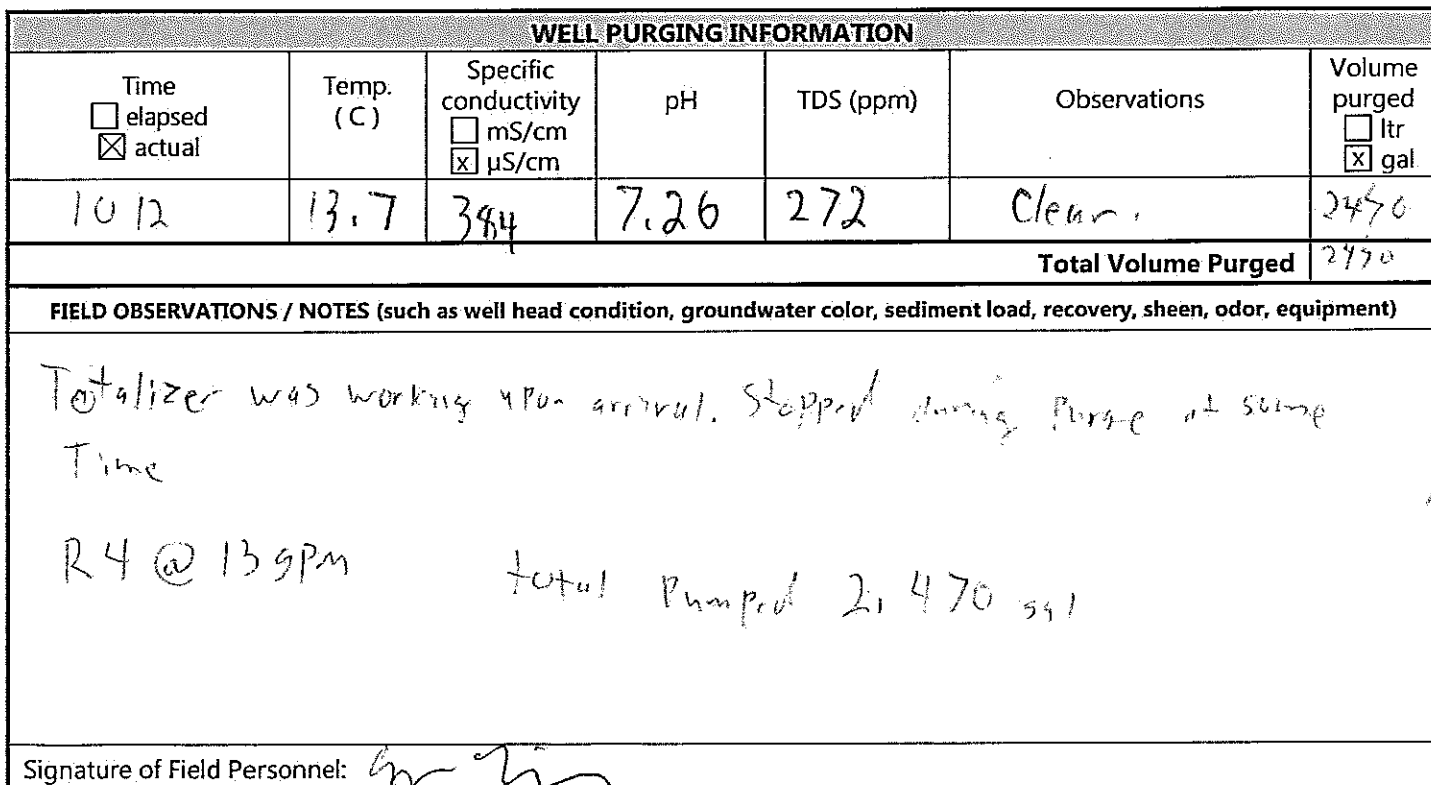 WELL PURGING INFORMATION
Time
☐ elapsed
☒ actual
Temp.
(C)
Specific
conductivity
☐ mS/cm
☒ µS/cm
pH
TDS (ppm)
Observations
Volume
purged
☐ ltr
☒ gal
1012
13.7
384
7.26
272
Clear.
2470
Total Volume Purged 2470
FIELD OBSERVATIONS / NOTES (such as well head condition, groundwater color, sediment load, recovery, sheen, odor, equipment)
Totalizer was working upon arrival. Stopped during Purge at some
Time
R4 @ 13 gpm total Pumped 2,470 gal
Signature of Field Personnel: